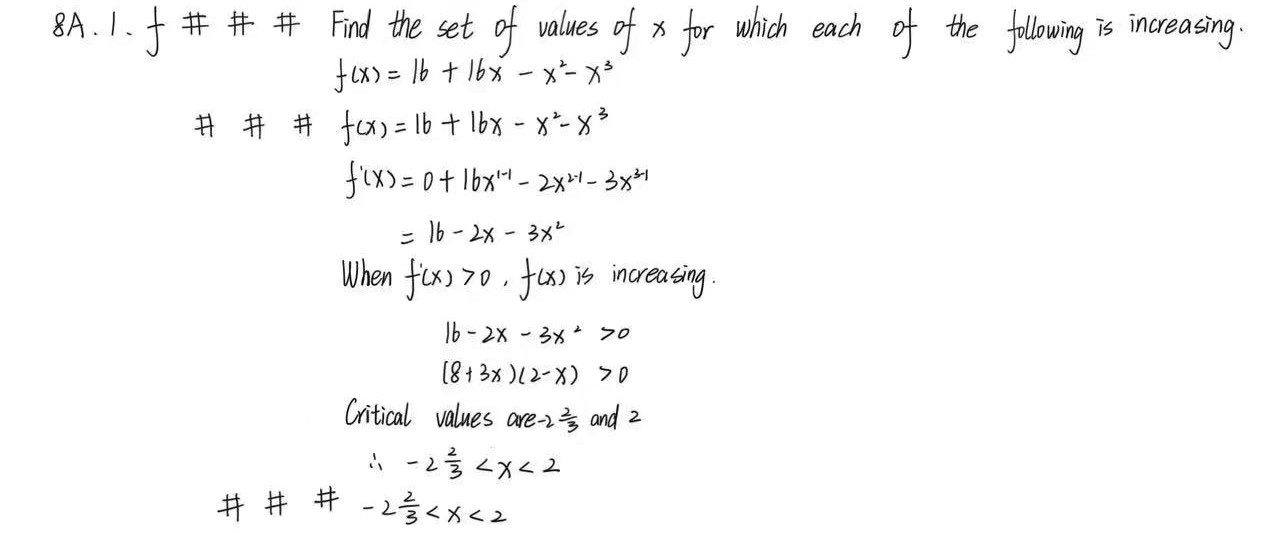 8A.1.f # # # Find the set of values of x for which each of the following is increasing.
f(x) = 16 + 16x - x² - x³
# # # f(x) = 16 + 16x - x² - x³
f'(x) = 0 + 16x¹⁻¹ - 2x²⁻¹ - 3x³⁻¹
= 16 - 2x - 3x²
When f'(x) > 0, f(x) is increasing.
16 - 2x - 3x² > 0
(8+3x)(2-x) > 0
Critical values are -2 2/3 and 2
∴ -2 2/3 < x < 2
# # # -2 2/3 < x < 2